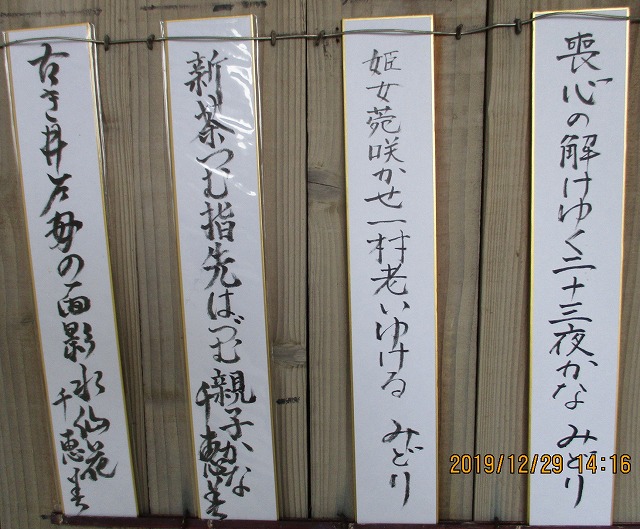 喪心の解けゆく二十三夜かな みどり
姫女菀咲かせ一村老いゆける みどり
新茶つむ指先はづむ親子かな
千恵美
古き井戸母の面影水仙花
千恵美
2019/12/29 14:16